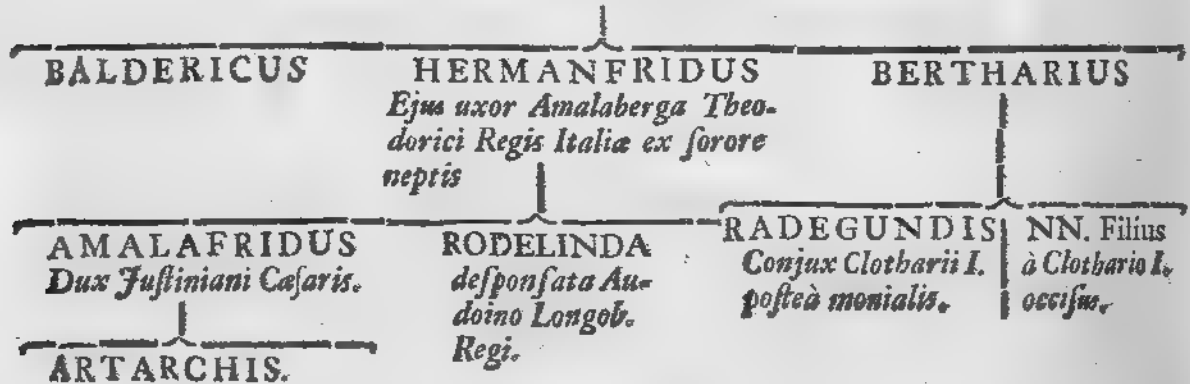 BALDERICUS
HERMANFRIDUS
Ejus uxor Amalaberga Theo-
dorici Regis Italiæ ex ſorore
neptis
BERTHARIUS
AMALAFRIDUS
Dux Juſtiniani Cæſaris.
RODELINDA
deſponſata Au-
doino Longob.
Regi.
RADEGUNDIS
Conjux Clotharii I.
poſteà monialis.
NN. Filius
à Clothario I.
occiſus.
ARTARCHIS.